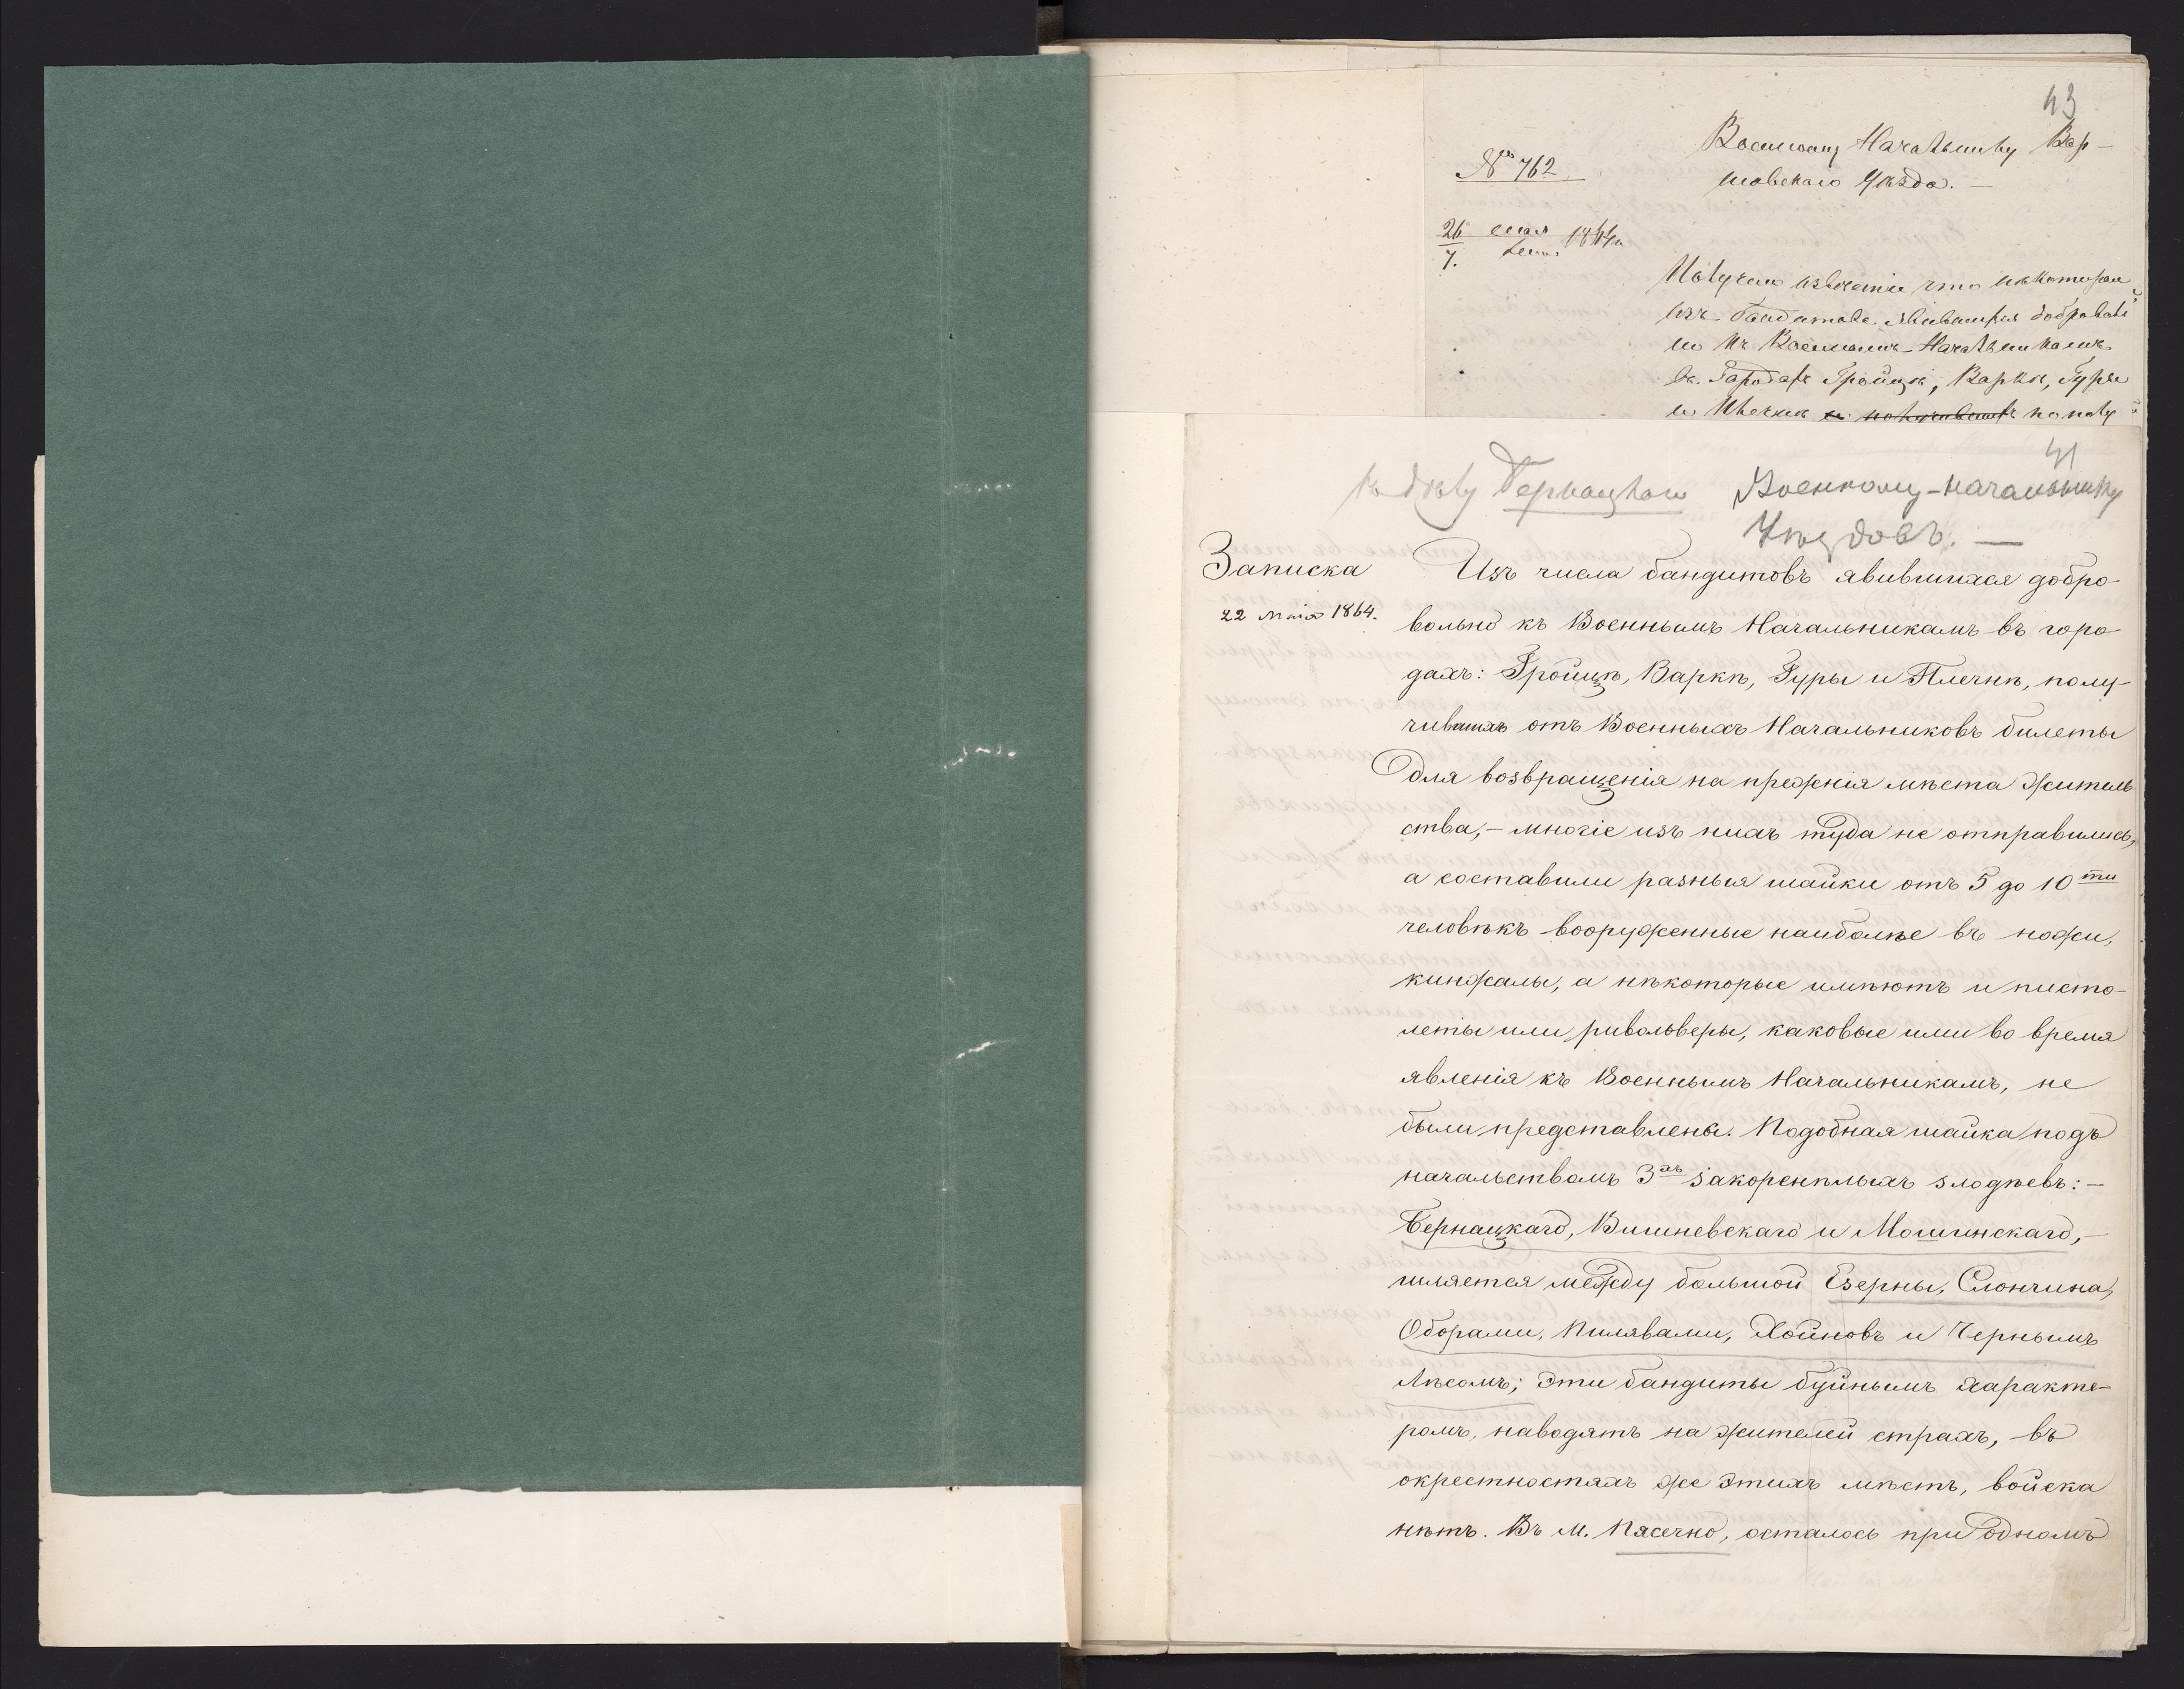 43
Военному Начальнику Вар-
шавскаго Уѣзда. —
№ 762
26 мая 1864 г.
7.
Получено извѣстіе что нѣкоторые
изъ бандитовъ явившихся доброволь
но къ Военнымъ Начальникамъ
въ Городахъ Гройцѣ, Варкѣ, Гурѣ
и получившихъ по полу
41
Къ дѣлу Бернацкаго Военному-начальнику
Уѣздовъ. —
Записка
22 мая 1864.
Изъ числа бандитовъ явившихся добро-
вольно къ Военнымъ Начальникамъ въ горо
дахъ: Гройцѣ, Варкѣ, Гуры и Плечнѣ, полу-
чившихъ отъ Военныхъ Начальниковъ билеты
для возвращенія на прежнія мѣста житель
ства, — многіе изъ нихъ туда не отправились,
а составили разныя шайки отъ 5 до 10ти
человѣкъ вооруженные наиболѣе въ ножи,
кинжалы, а нѣкоторые имѣютъ и писто-
леты или ривольверы, каковые ими во время
явленія къ Военнымъ Начальникамъ, не
были представлены. Подобная шайка подъ
начальствомъ 3хъ закоренѣлыхъ злодѣевъ: —
Бернацкаго, Вишневскаго и Мошинскаго, —
шляется между большой Езерны, Слончина,
Оборами, Пилявами, Хойновъ и Чернымъ
Лѣсомъ; Эти бандиты буйнымъ характе-
ромъ, наводятъ на жителей страхъ, въ
окрестностяхъ же этихъ мѣстъ, войска
нѣтъ. Въ м. Пясечно, осталось при одномъ